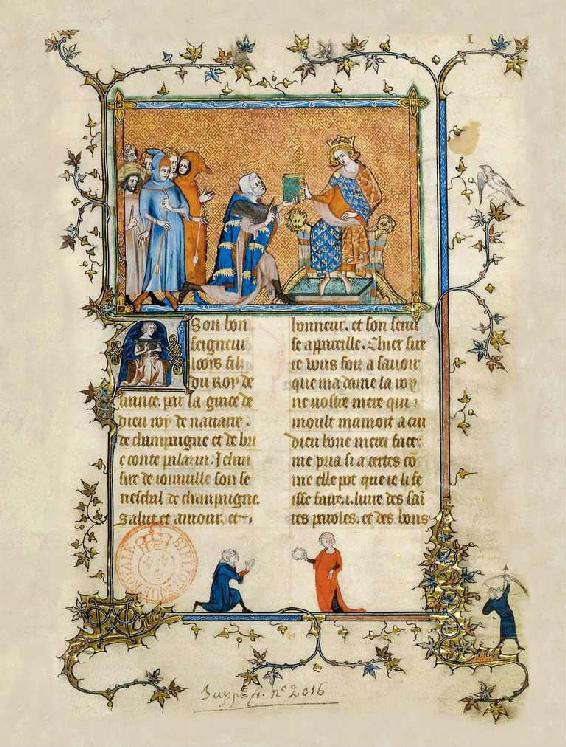 1.
A Son bon
seigneur
looys filz
du Roy de
france. par la grace de
dieu roy de navarre.
de champaigne et de bri
e conte palazin. Jehan
sire de joinville son se
neschal de champaigne
Salut et amour. et
honneur. et son servi
se apareille. Chier sire
je vous foiz a savoir
que ma dame la roy
ne vostre mere qui
moult mamoit a cui
dieu bone merci face.
me pria si a certes co
me elle pot que je li fe
isse faire .i. livre des sai
tes paroles. et des bons
Suppl. fr. n° 2016